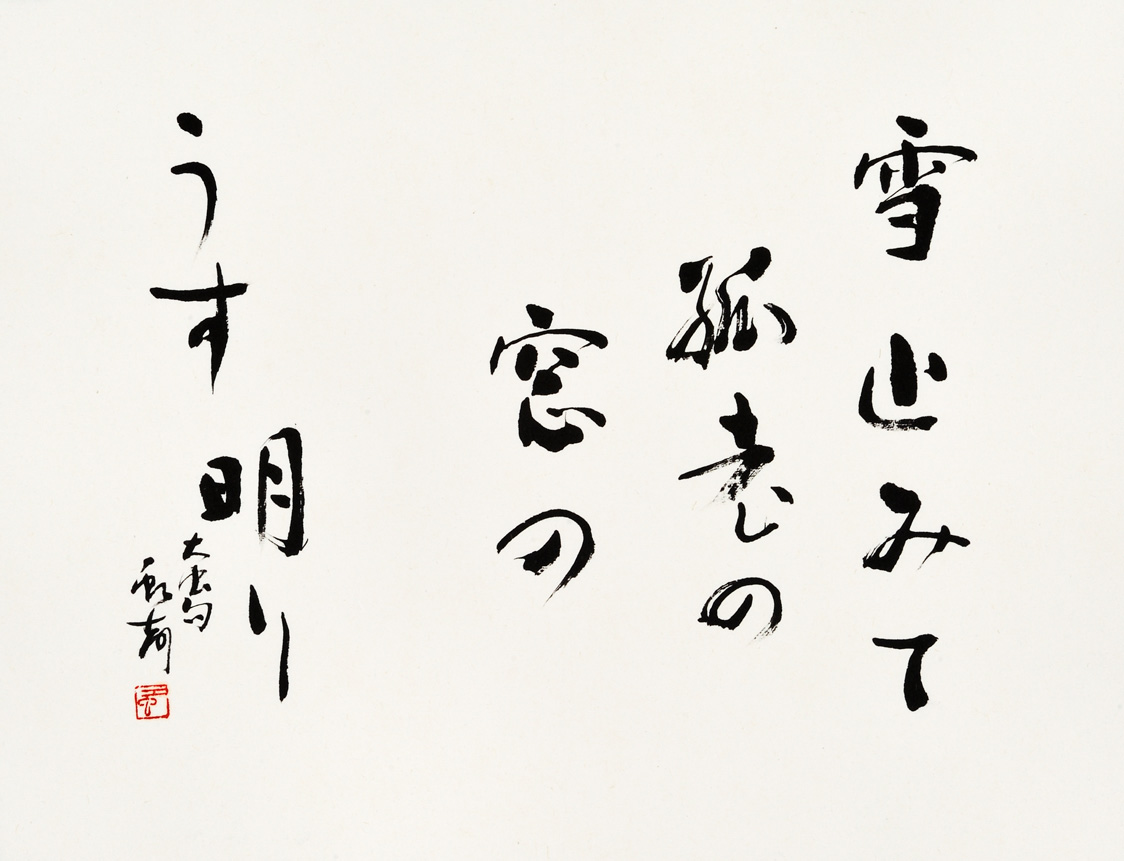 雪止みて
孤老の
窓の
うす明り
大虫句